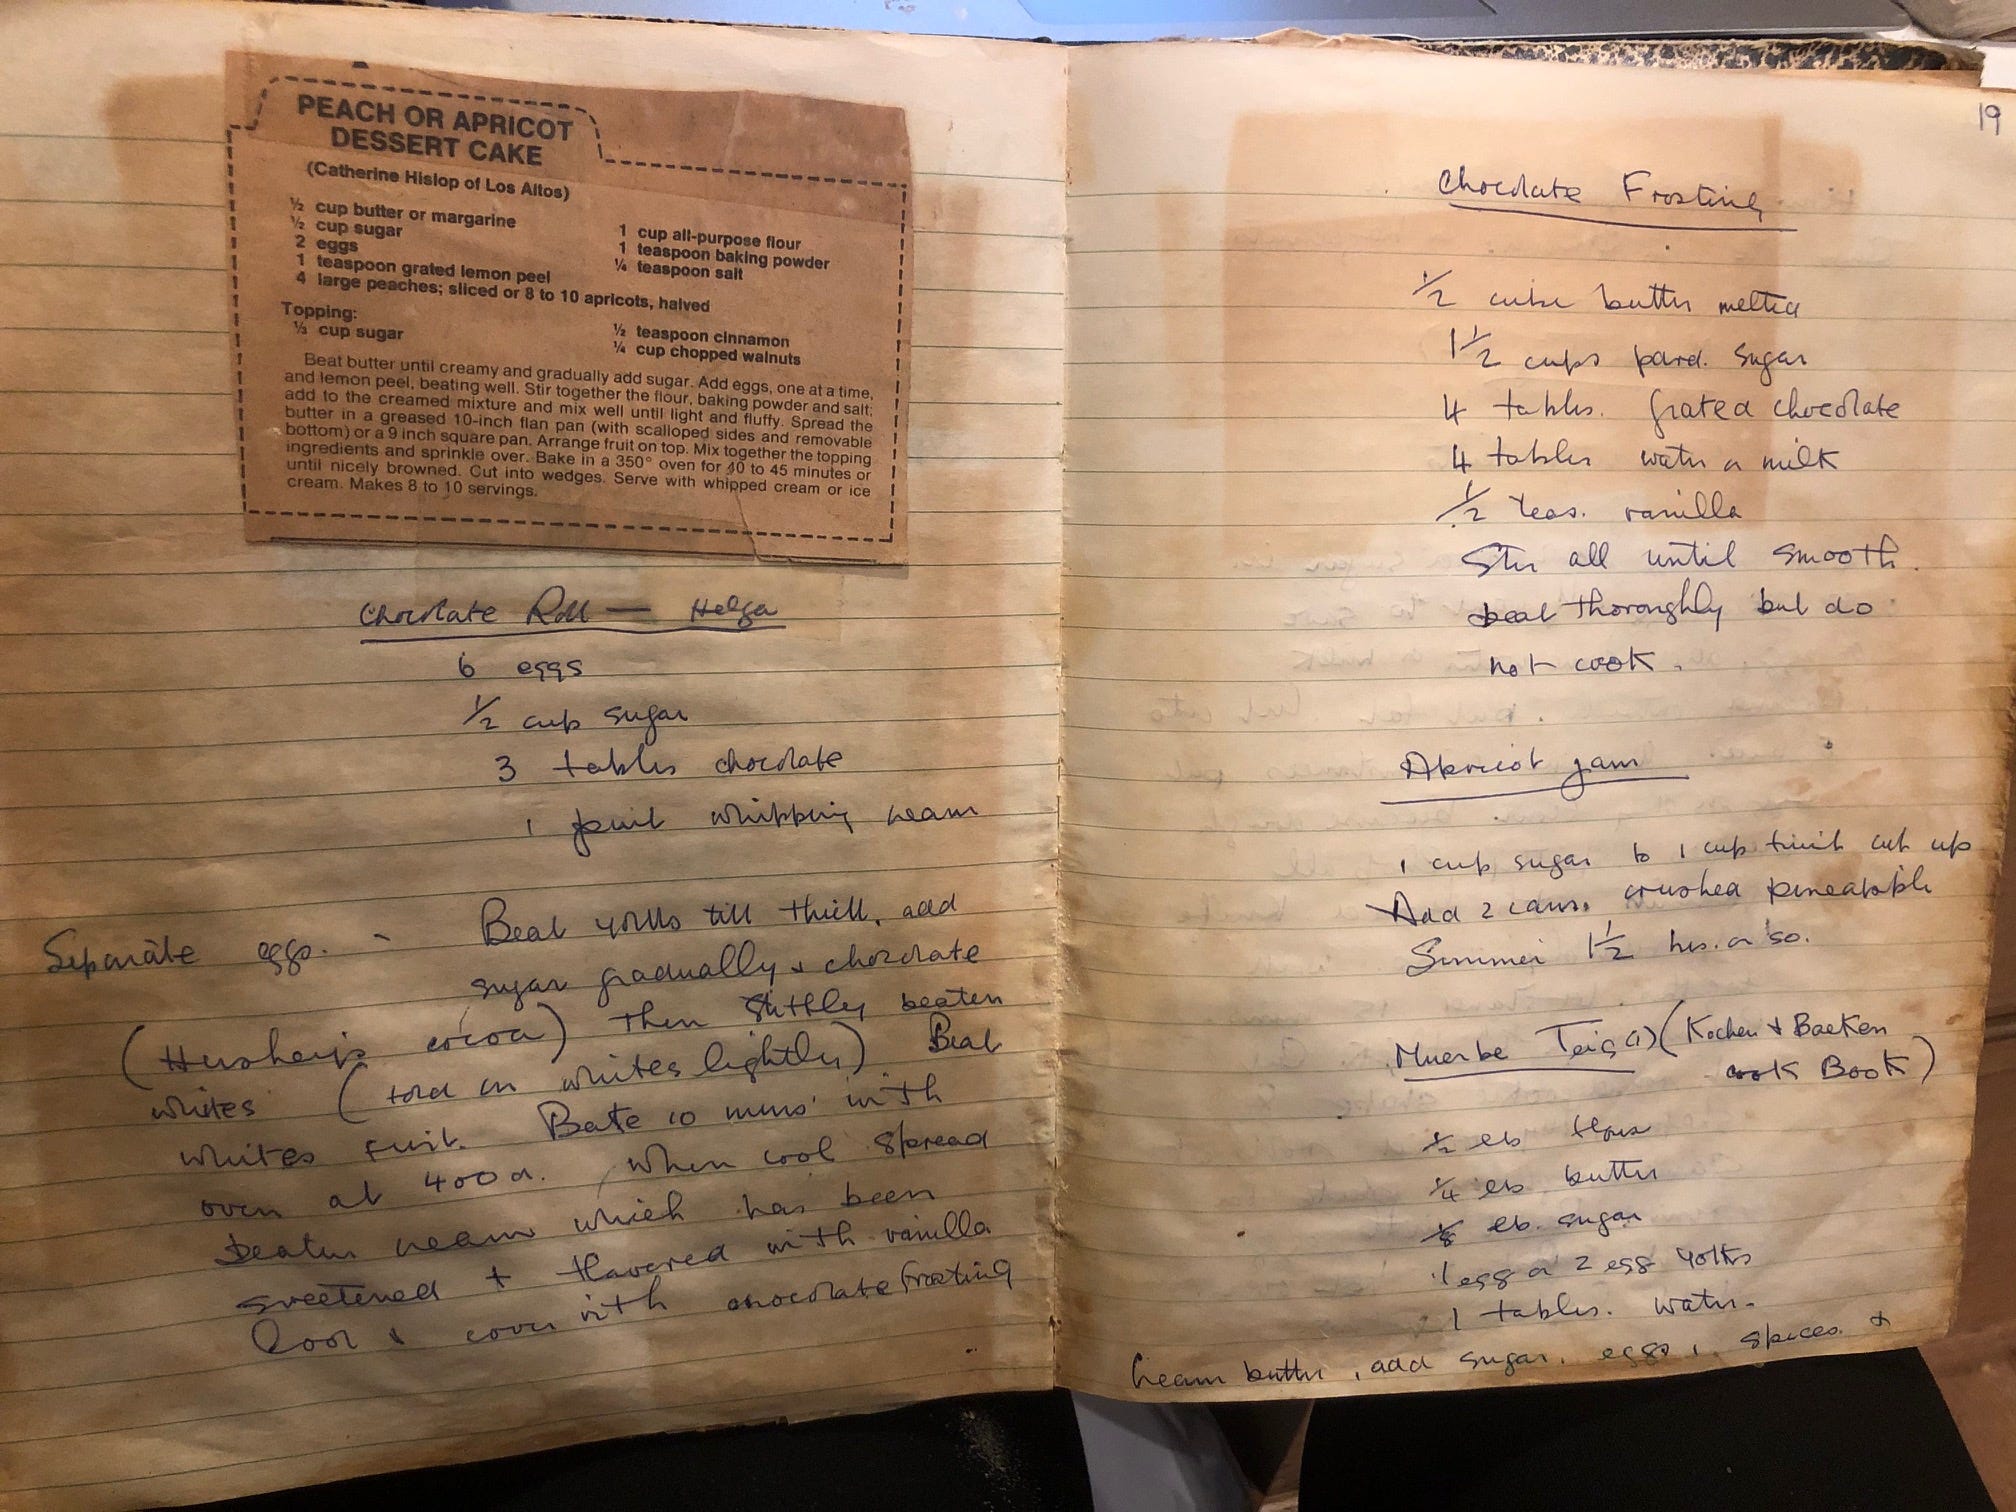 PEACH OR APRICOT
DESSERT CAKE
(Catherine Hislop of Los Altos)
½ cup butter or margarine
½ cup sugar
2 eggs
1 teaspoon grated lemon peel
4 large peaches; sliced or 8 to 10 apricots, halved
1 cup all-purpose flour
1 teaspoon baking powder
¼ teaspoon salt
Topping:
⅓ cup sugar
½ teaspoon cinnamon
¼ cup chopped walnuts
Beat butter until creamy and gradually add sugar. Add eggs, one at a time,
and lemon peel, beating well. Stir together the flour, baking powder and salt;
add to the creamed mixture and mix well until light and fluffy. Spread the
butter in a greased 10-inch flan pan (with scalloped sides and removable
bottom) or a 9 inch square pan. Arrange fruit on top. Mix together the topping
ingredients and sprinkle over. Bake in a 350° oven for 40 to 45 minutes or
until nicely browned. Cut into wedges. Serve with whipped cream or ice
cream. Makes 8 to 10 servings.
Chocolate Roll — Helga
6 eggs
½ cup sugar
3 tables chocolate
1 pint whipping cream
Separate eggs. - Beat yolks till thick, add
sugar gradually & chocolate
(Hershey's cocoa) then stiffly beaten
whites (fold in whites lightly) Beat
whites first. Bake 10 mins' in
oven at 400 . When cool spread
beaten cream which has been
sweetened + flavored with vanilla
& cover with chocolate frosting
19
Chocolate Frosting
½ cube butter melted
1½ cups powd. sugar
4 tables. grated chocolate
4 tables water or milk
½ teas. vanilla
Stir all until smooth.
beat thoroughly but do
not cook.
Apricot Jam
1 cup sugar to 1 cup fruit cut up
Add 2 cans. crushed pineapple
Simmer 1½ hrs. or so.
Muerbe Teig (1) (Kochen + Backen
Book)
½ lb flour
¼ lb butter
⅛ lb. sugar
1 egg or 2 egg yolks
1 tables. water.
Cream butter, add sugar, eggs, spices &